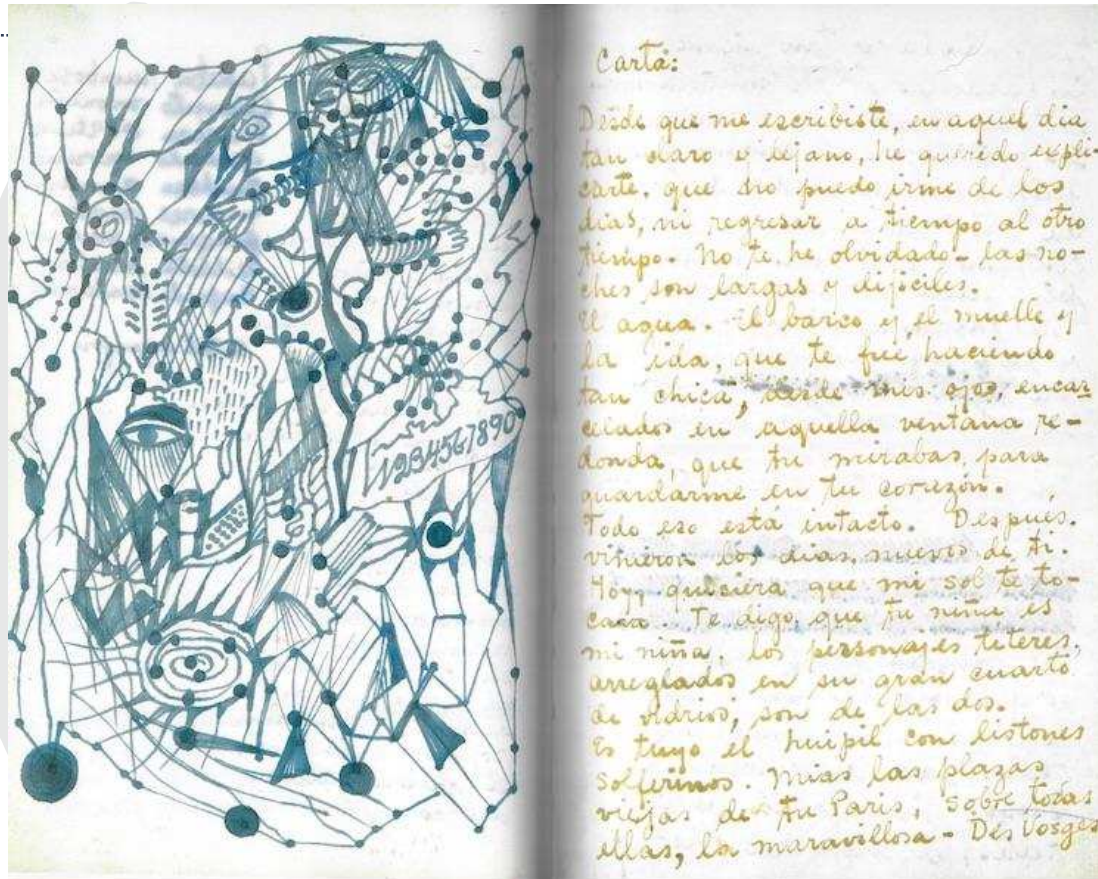 1234567890
Carta:
Desde que me escribiste, en aquel dia
tan claro y lejano, he querido expli-
carte, que no puedo irme de los
dias, ni regresar a tiempo al otro
tiempo. No te he olvidado - las no-
ches son largas y dificiles.
El agua. El barco y el muelle y
la ida, que te fué haciendo
tan chica, desde mis ojos, encar-
celados en aquella ventana re-
donda, que tu mirabas para
guardarme en tu corazón.
Todo eso está intacto. Después,
vinieron los dias nuevos de ti.
Hoy, quisiera que mi sol te to-
cara. Te digo, que tu niña es
mi niña, los personajes titeres,
arreglados en su gran cuarto
de vidrios, son de las dos.
Es tuyo el huipil con listones
solferinos. Mias las plazas
viejas de tu Paris, sobre todas
ellas, la maravillosa - Des Vosges